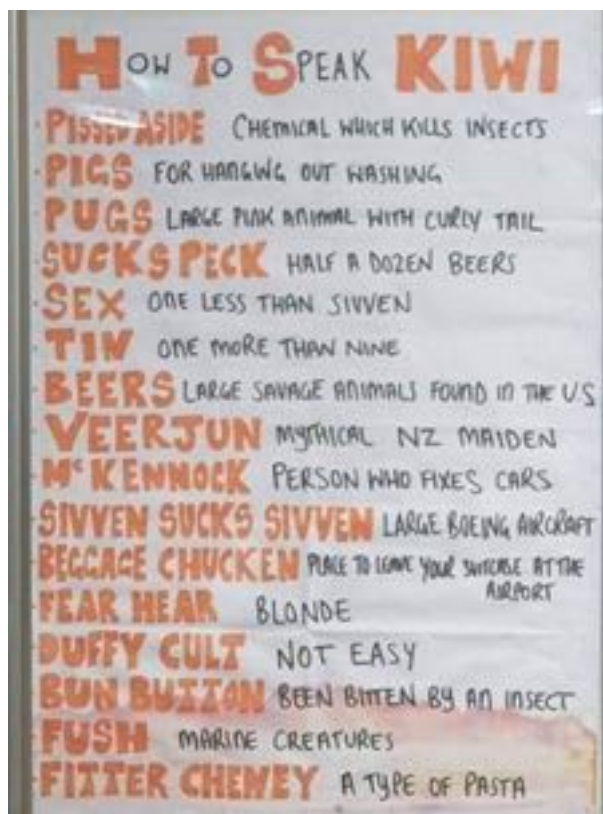 HOW TO SPEAK KIWI
PISSED ASIDE CHEMICAL WHICH KILLS INSECTS
PIGS FOR HANGING OUT WASHING
PUGS LARGE PINK ANIMAL WITH CURLY TAIL
SUCKS PECK HALF A DOZEN BEERS
SEX ONE LESS THAN SIVVEN
TIN ONE MORE THAN NINE
BEERS LARGE SAVAGE ANIMALS FOUND IN THE U.S
VEERJUN MYTHICAL NZ MAIDEN
McKENNOCK PERSON WHO FIXES CARS
SIVVEN SUCKS SIVVEN LARGE BOEING AIRCRAFT
BEGGAGE CHUCKEN PLACE TO LEAVE YOUR SUITCASE AT THE
AIRPORT
FEAR HEAR BLONDE
DUFFY CULT NOT EASY
BUN BUTTON BEEN BITTEN BY AN INSECT
FUSH MARINE CREATURES
FITTER CHENEY A TYPE OF PASTA